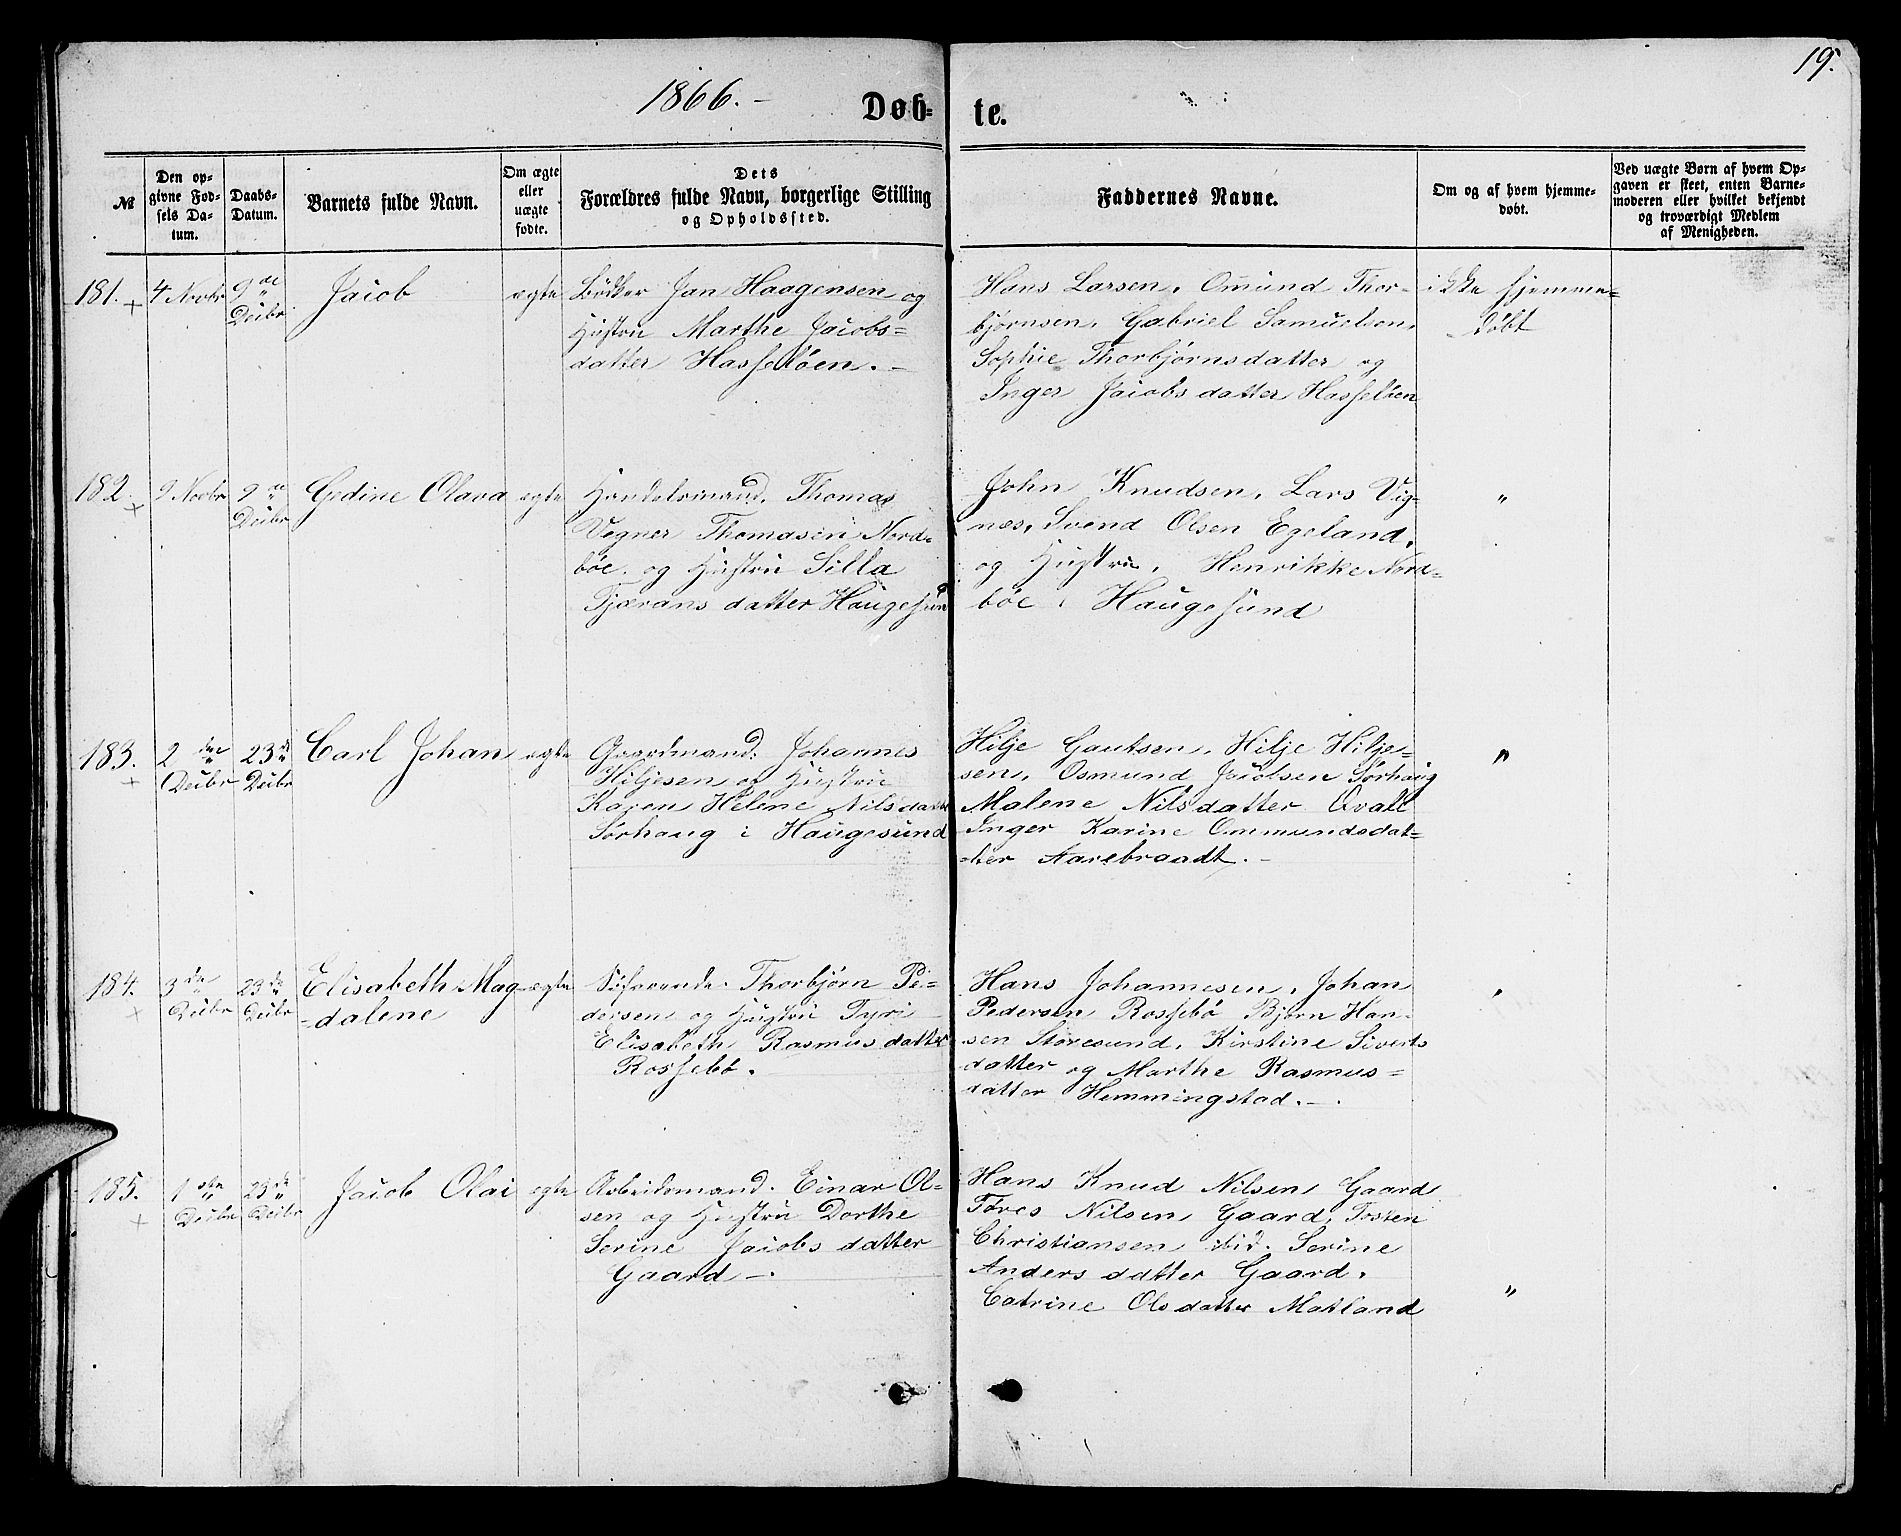 19.
1866. -
Døb-
te.
№
Den op-
givne Fød-
sels Da-
tum.
Daabs-
Datum.
Barnets fulde Navn.
Om ægte
eller
uægte
fødte.
Dets
Forældres fulde Navn, borgerlige Stilling
og Opholdssted.
Faddernes Navne.
Om og af hvem hjemme-
døbt.
Ved uægte Børn af hvem Op-
gaven er skeet, enten Barne-
moderen eller hvilket bekjendt
og troværdigt Medlem
af Menigheden.
181. +
4 Novbr
9de
Decbr.
Jacob
egte
Bødker Jan Haagensen og
Hustru Marthe Jacobs=
datter Hasseløen. -
Hans Larsen, Omund Thor-
bjørnsen, Gabriel Samuelsen,
Sophie Thorbjørnsdatter og
Inger Jacobsdatter Hasseløen
ikke hjemme=
døbt
182. +
9 Novbr
9de
Decbr
Gedine Olava
egte
Handelsmand. Thomas
Vegner Thomasen Nord=
bøe. og Hustru Silla
Tjærans datter Haugesund
John Knudsen, Lars Vig-
nes, Svend Olsen Egeland,
og Hustru, Henrikke Nord=
bøe, Haugesund
"
183. +
2den
Decbr
23de
Decbr
Carl Johan
egte
Gaardmand: Johannes
Hiljesen og Hustru
Karen Helene Nilsdatter
Sørhaug i Haugesund
Hilje Gautsen, Hilje Hilje=
sen, Osmund Jacobsen Sørhaug
Malene Nilsdatter Qvale
Inger Karine Ommundsdat=
ter Aarebraadt. -
"
184. +
3de
Decbr
23de
Decbr
Elisabeth Mag-
=dalene
egte
Søfarende. Thorbjørn Pe=
dersen og Hustru Tyri
Elisabeth Rasmusdatter
Rossebø.
Hans Johannesen, Johan
Pedersen Rossebø Bjørn Han-
sen Storesund, Kirstine Siverts
datter og Marthe Rasmus=
datter Hemmingstad. -.
"
185. +
1ste
Decbr
23de
Decbr
Jacob Olai
egte
Arbeidsmand. Einar Ol=
sen og Hustru Dorthe
Serine Jacobsdatter
Gaard -.
Hans Knud Nilsen Gaard
Tøres Nilsen Gaard, Tosten
Christiansen ibid. Serine
Andersdatter Gaard.
Catrine Olsdatter Matland
"